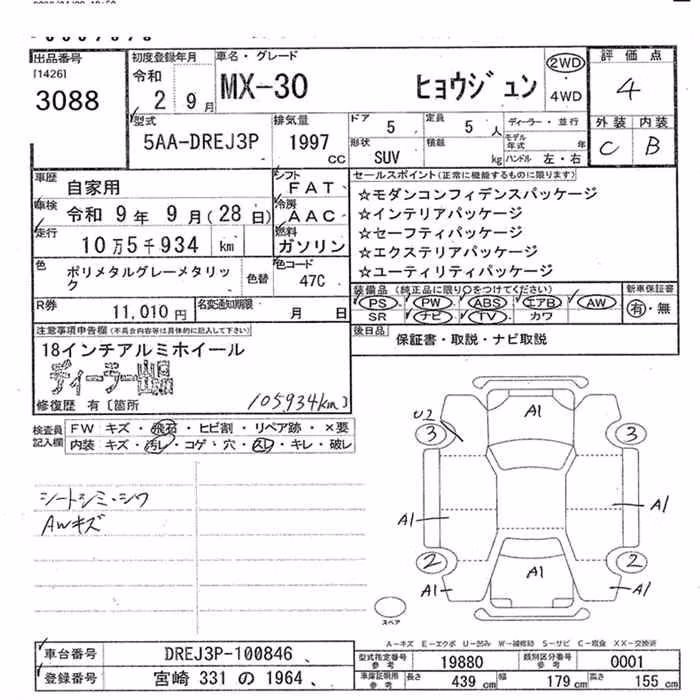 出品番号 初度登録年月 車名・グレード 2WD 評価点
[1426] 令和 MX-30 ヒョウジュン 4WD 4
3088 2 9月
型式 排気量 ドア 定員 ディーラー・並行 外装 内装
5AA-DREJ3P 1997 cc 5 5 人 モデル年式 年 C B
形状 SUV 積載 kg ハンドル 左・右
車歴 自家用 シフト FAT セールスポイント(正常に機能するものに限る)
車検 令和 9年 9月(28日) 冷房 AAC ☆モダンコンフィデンスパッケージ
☆インテリアパッケージ
走行 10万5千934 km 燃料 ガソリン ☆セーフティパッケージ
☆エクステリアパッケージ
色 ポリメタルグレーメタリック 色替 色コード 47C ☆ユーティリティパッケージ
装備品(純正品に限り○をつけてください) 新車保証書
R券 11,010円 名変通知期限 月 日 PS・PW・ABS・エアB・AW 有・無
SR ナビ・TV・カワ
注意事項申告欄(不具合内容等は具体的に記入して下さい) 後日品 保証書・取説・ナビ取説
18インチアルミホイール
ディーラー出品
修復歴 有〔箇所 105,934km〕
検査員記入欄 FW キズ・飛石・ヒビ割・リペア跡・×要
内装 キズ・汚レ・コゲ・穴・スレ・キレ・破レ
シートシミ・シワ
AWキズ
A1
U2
3 3
A1 A1
2 2
A1 A1 A1
スペア
A-キズ E-エクボ U-凹み W-補修跡 S-サビ C-腐食 XX-交換済
車台番号 DREJ3P-100846 型式指定番号 参考 19880 類別区分番号 参考 0001
登録番号 宮崎 331 の 1964 車庫証明用 参考 長さ 439 cm 幅 179 cm 高さ 155 cm